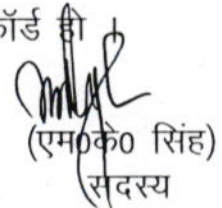 कॉर्ड हो ।
(एम0के0 सिंह)
सदस्य